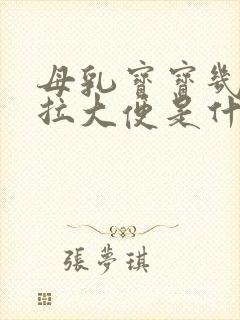 母乳寶寶幾
拉大便是什
張夢琪